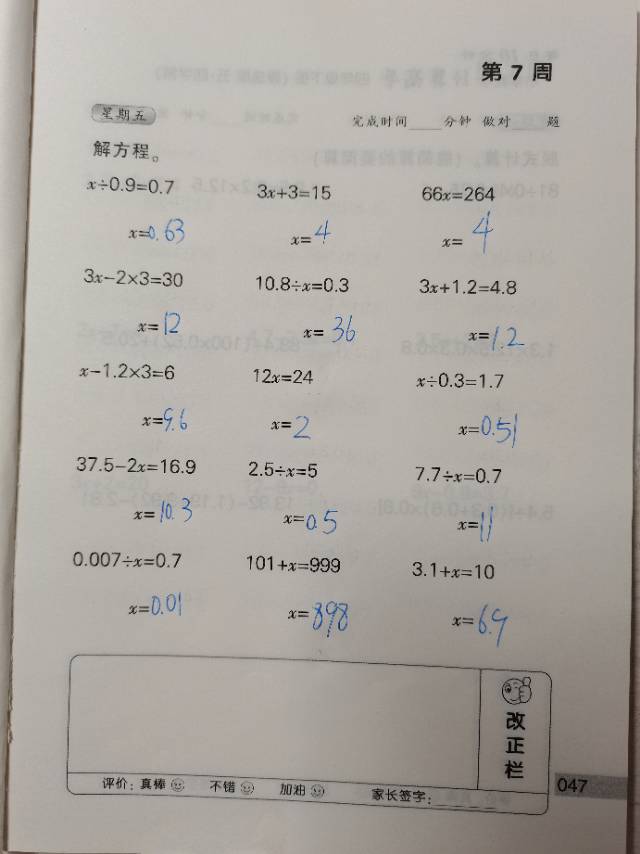 第 7 周
星期五 完成时间____分钟 做对____题
解方程。
x÷0.9=0.7 3x+3=15 66x=264
x=0.63 x=4 x=4
3x−2×3=30 10.8÷x=0.3 3x+1.2=4.8
x=12 x=36 x=1.2
x−1.2×3=6 12x=24 x÷0.3=1.7
x=9.6 x=2 x=0.51
37.5−2x=16.9 2.5÷x=5 7.7÷x=0.7
x=10.3 x=0.5 x=11
0.007÷x=0.7 101+x=999 3.1+x=10
x=0.01 x=898 x=6.9
改正栏
评价：真棒 不错 加油 家长签字：________
047